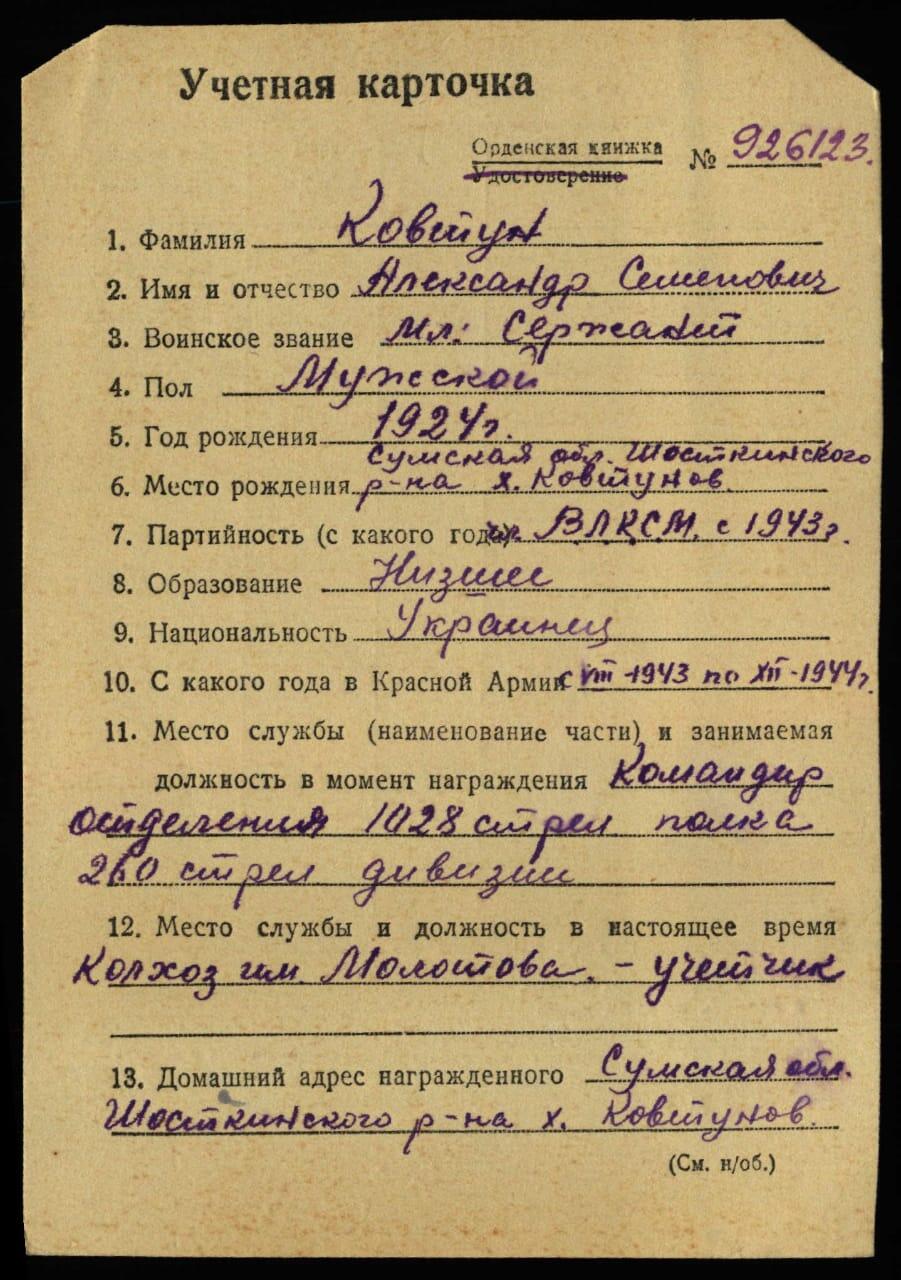 Учетная карточка
Орденская книжка
Удостоверение № 926123.
1. Фамилия Ковтун
2. Имя и отчество Александр Семенович
3. Воинское звание Мл. Сержант
4. Пол Мужской
5. Год рождения 1924г.
Сумская обл. Шосткинского
6. Место рождения р-на х. Ковтунов.
7. Партийность (с какого года) чл. ВЛКСМ. с 1943г.
8. Образование Низшее
9. Национальность Украинец
10. С какого года в Красной Армии с VIII-1943 по XII-1944г.
11. Место службы (наименование части) и занимаемая
должность в момент награждения Командир
отделения 1028 стрел полка
260 стрел дивизии
12. Место службы и должность в настоящее время
Колхоз им. Молотова. - учетчик
13. Домашний адрес награжденного Сумская обл.
Шосткинского р-на х. Ковтунов.
(См. н/об.)